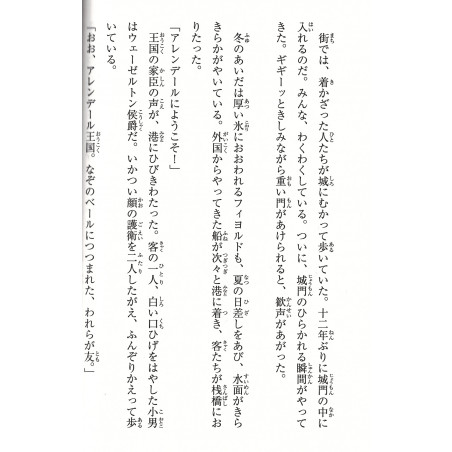 街では、着かざった人たちが城にむかって歩いていた。十二年ぶりに城門の中に
入れるのだ。みんな、わくわくしている。ついに、城門のひらかれる瞬間がやって
きた。ギギーッときしみながら重い門があけられると、歓声があがった。
冬のあいだは厚い氷におおわれるフィヨルドも、夏の日差しをあび、水面がきら
きらかがやいている。外国からやってきた船が次々と港に着き、客たちが桟橋にお
りたった。
「アレンデールにようこそ！」
王国の家臣の声が、港にひびきわたった。客の一人、白い口ひげをはやした小男
はウェーゼルトン侯爵だ。いかつい顔の護衛を二人したがえ、ふんぞりかえって歩
いている。
「おお、アレンデール王国。なぞのベールにつつまれた、われらが友。」